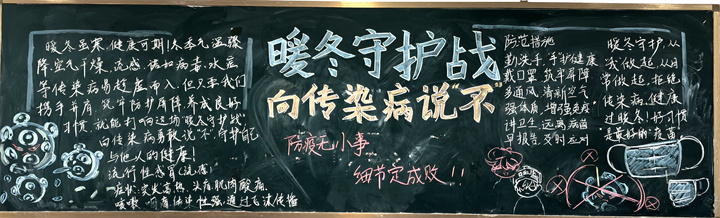 暖冬虽寒,健康可期!冬季气温骤
降空气干燥,流感、诺如病毒、水痘
等传染病易趁虚而入,但只要我们
携手并肩筑牢防护屏障养成良好
习惯就能打响这场"暖冬守护战"
向传染病勇敢说"不",守护自己
与他人的健康!
流行性感冒(流感)
症状:突发高热、头痛、肌肉酸痛、
咳嗽
性强,通过飞沫传播
暖冬守护战
向传染病说"不"
防疫无小事
细节定成败!!
防范措施
勤洗手,手护健康
戴口罩,执牢屏障
多通风,清新空气
强体质,增强免疫
讲卫生,远离病菌
早报告,及时应对
暖冬守护,从
我做起,从日
常做起,拒绝
传染病,健康
过暖冬!好习惯
是最棒的"疫苗"